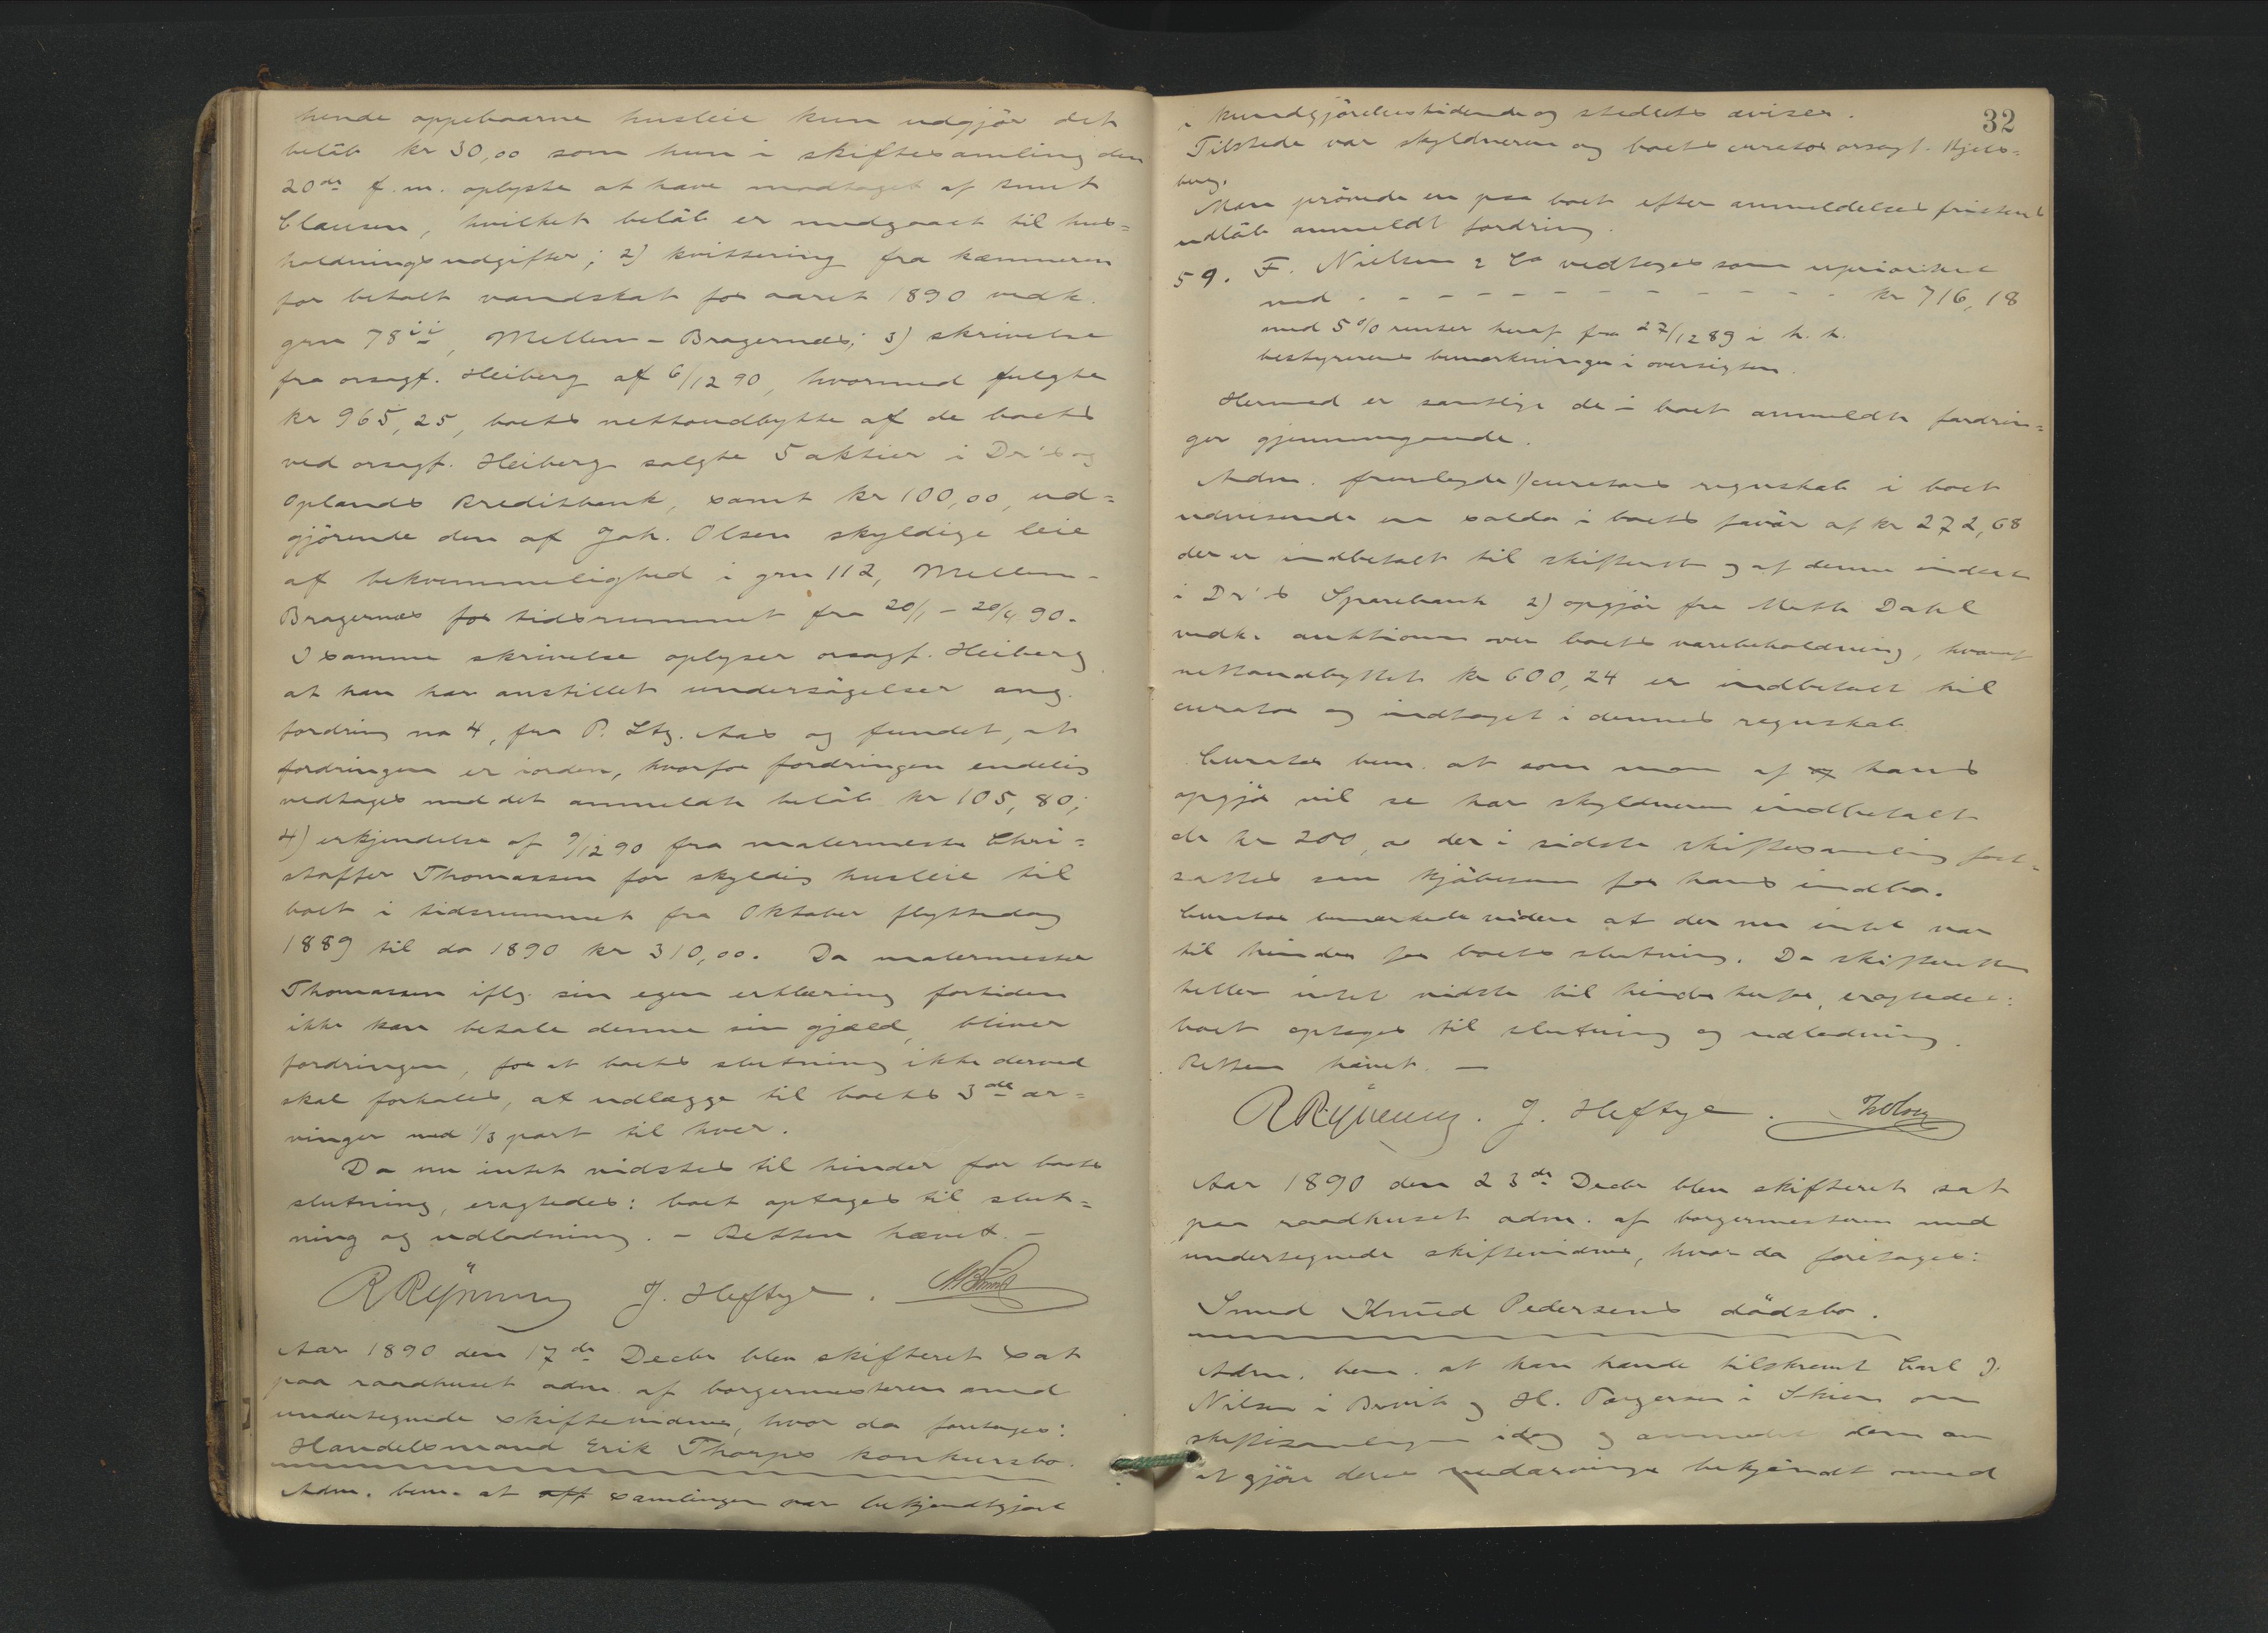 hende oppebaarne husleie kun udgjør det
beløb kr 30,00 som hun i skiftesamling den
20de f.m. oplyste at have modtaget af smed
Clausen, hvilket beløb er medgaaet til hus=
holdningsudgifter; 2) kvittering fra kæmneren
for betalt vandskat for aaret 1890 vedk.
grn 78ii, Mellem-Bragernes; 3) skrivelse
fra orsagf. Heiberg af 6/12 90, hvormed fulgte
kr 965,25, boets nettoudbytte af de boets
ved orsagf. Heiberg solgte 5 aktier i Dr's og
Oplands Kreditbank, samt kr 100,00, ud=
gjørende den af Joh. Olsen skyldige leie
af bekvemmelighed i grn 112, Mellem-
Bragernes for tidsrummet fra 20/1 - 20/4 90.
I samme skrivelse oplyser orsagf. Heiberg
at han har anstillet undersøgelser ang.
fordring no 4, fra P. Ltz. Aas og fundet, at
fordringen er iorden, hvorfor fordringen endelig
vedtages med det anmeldte beløb kr 105,80;
4) erkjendelse af 9/12 90 fra malermester Chri=
stoffer Thomassen for skyldig husleie til
boet i tidsrummet fra Oktober flyttedag
1889 til do 1890 kr 310,00. Da malermester
Thomassen iflg. sin egen erklæring fortiden
ikke kan betale denne sin gjæld, bliver
fordringen, for at boets slutning ikke derved
skal forhales, at udlægge til boets 3de ar=
vinger med 1/3 part til hver.
Da nu intet vidstes til hinder for boets
slutning, eragtedes: boet optages til slut=
ning og udlodning. - Retten hævet. -
R Rÿnning J. Heftye.
Aar 1890 den 17de Decbr blev skifteret sat
paa raadhuset adm. af borgermesteren med
undertegnede skiftevidner, hvor da foretages:
Handelsmand Erik Thorps konkursbo.
Adm. bem. at samlingen var bekjendtgjort
32
i kundgjørelsestidende og stedets aviser.
Tilstede var skyldneren og boets curator orsagf. Kjels=
berg.
Man prøvede en paa boet efter anmeldelsesfristens
udløb anmeldt fordring.
59. F. Nielsen & Co vedtoges som uprioriteret
med - - - - - - - - - - - - kr 716,18
med 5% renter heraf fra 27/12 89 i h. h.
bestyrerens bemærkninger i oversigten.
Hermed er samtlige de i boet anmeldte fordrin=
ger gjennemgaaede.
Adm. fremlagde 1) curators regnskab i boet
udvisende en saldo i boets favør af kr 272,68
der er indbetalt til skifteret og af denne indsat
i Dr's Sparebank 2) opgjør fra Dahl
vedk. auktionen over boets varebeholdning, hvoraf
nettoudbyttet kr 600,24 er indbetalt til
curator og indtaget i dennes regnskab.
Curator bem. at som man af hans
opgjør vil se har skyldneren indbetalt
de kr 200, der i sidste skiftesamling fast=
sattes som kjøbesum for hans indbo.
Curator bemærkede videre at der nu intet var
til hinder for boets slutning. Da skifteretten
heller intet vidste til hinder herfor, eragtedes:
boet optages til slutning og udlodning.
Retten hævet. -
R Rÿnning. J. Heftye.
Aar 1890 den 23de Decbr blev skifteret sat
paa raadhuset adm. af borgermesteren med
undertegnede skiftevidner, hvor da foretages:
Smed Knud Pedersens dødsbo.
Adm. bem. at han havde tilskrevet Carl J.
Nilsen i Brevik og H. Torgersen i Skien om
skiftesamlingen idag og anmodet dem om
at gjøre deres medarvinger bekjendt med